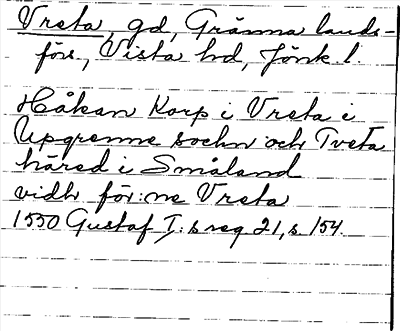 Vreta, gd, Gränna lands-
förs., Vista hd, Jönk. l.
Håkan Korp i Vreta i
Upgrenne sochn och Tveta
häred i Småland
vidh för:ne Vreta
1550 Gustaf I:s reg 21, s. 154.